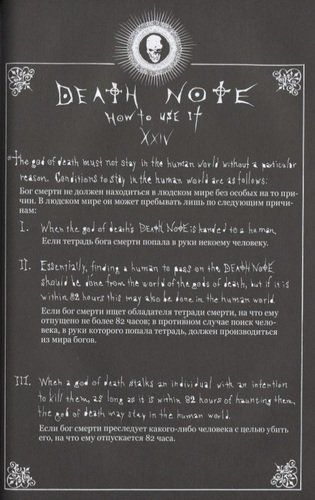 DEATH NOTE
HOW TO USE IT
XXIV
"The god of death must not stay in the human world without a particular
reason. Conditions to stay in the human world are as follows:
Бог смерти не должен находиться в людском мире без особых на то при-
чин. В людском мире он может пребывать лишь по следующим причи-
нам:
I. When the god of death's DEATH NOTE is handed to a human.
Если тетрадь бога смерти попала в руки некоему человеку.
II. Essentially, finding a human to pass on the DEATH NOTE
should be done from the world of the gods of death, but if it is
within 82 hours this may also be done in the human world.
Если бог смерти ищет обладателя тетради смерти, на что ему
отпущено не более 82 часов; в противном случае поиск чело-
века, в руки которого попала тетрадь, должен производиться
из мира богов.
III. When a god of death stalks an individual with an intention
to kill them, as long as it is within 82 hours of haunting them,
the god of death may stay in the human world.
Если бог смерти преследует какого-либо человека с целью убить
его, на что ему отпускается 82 часа.